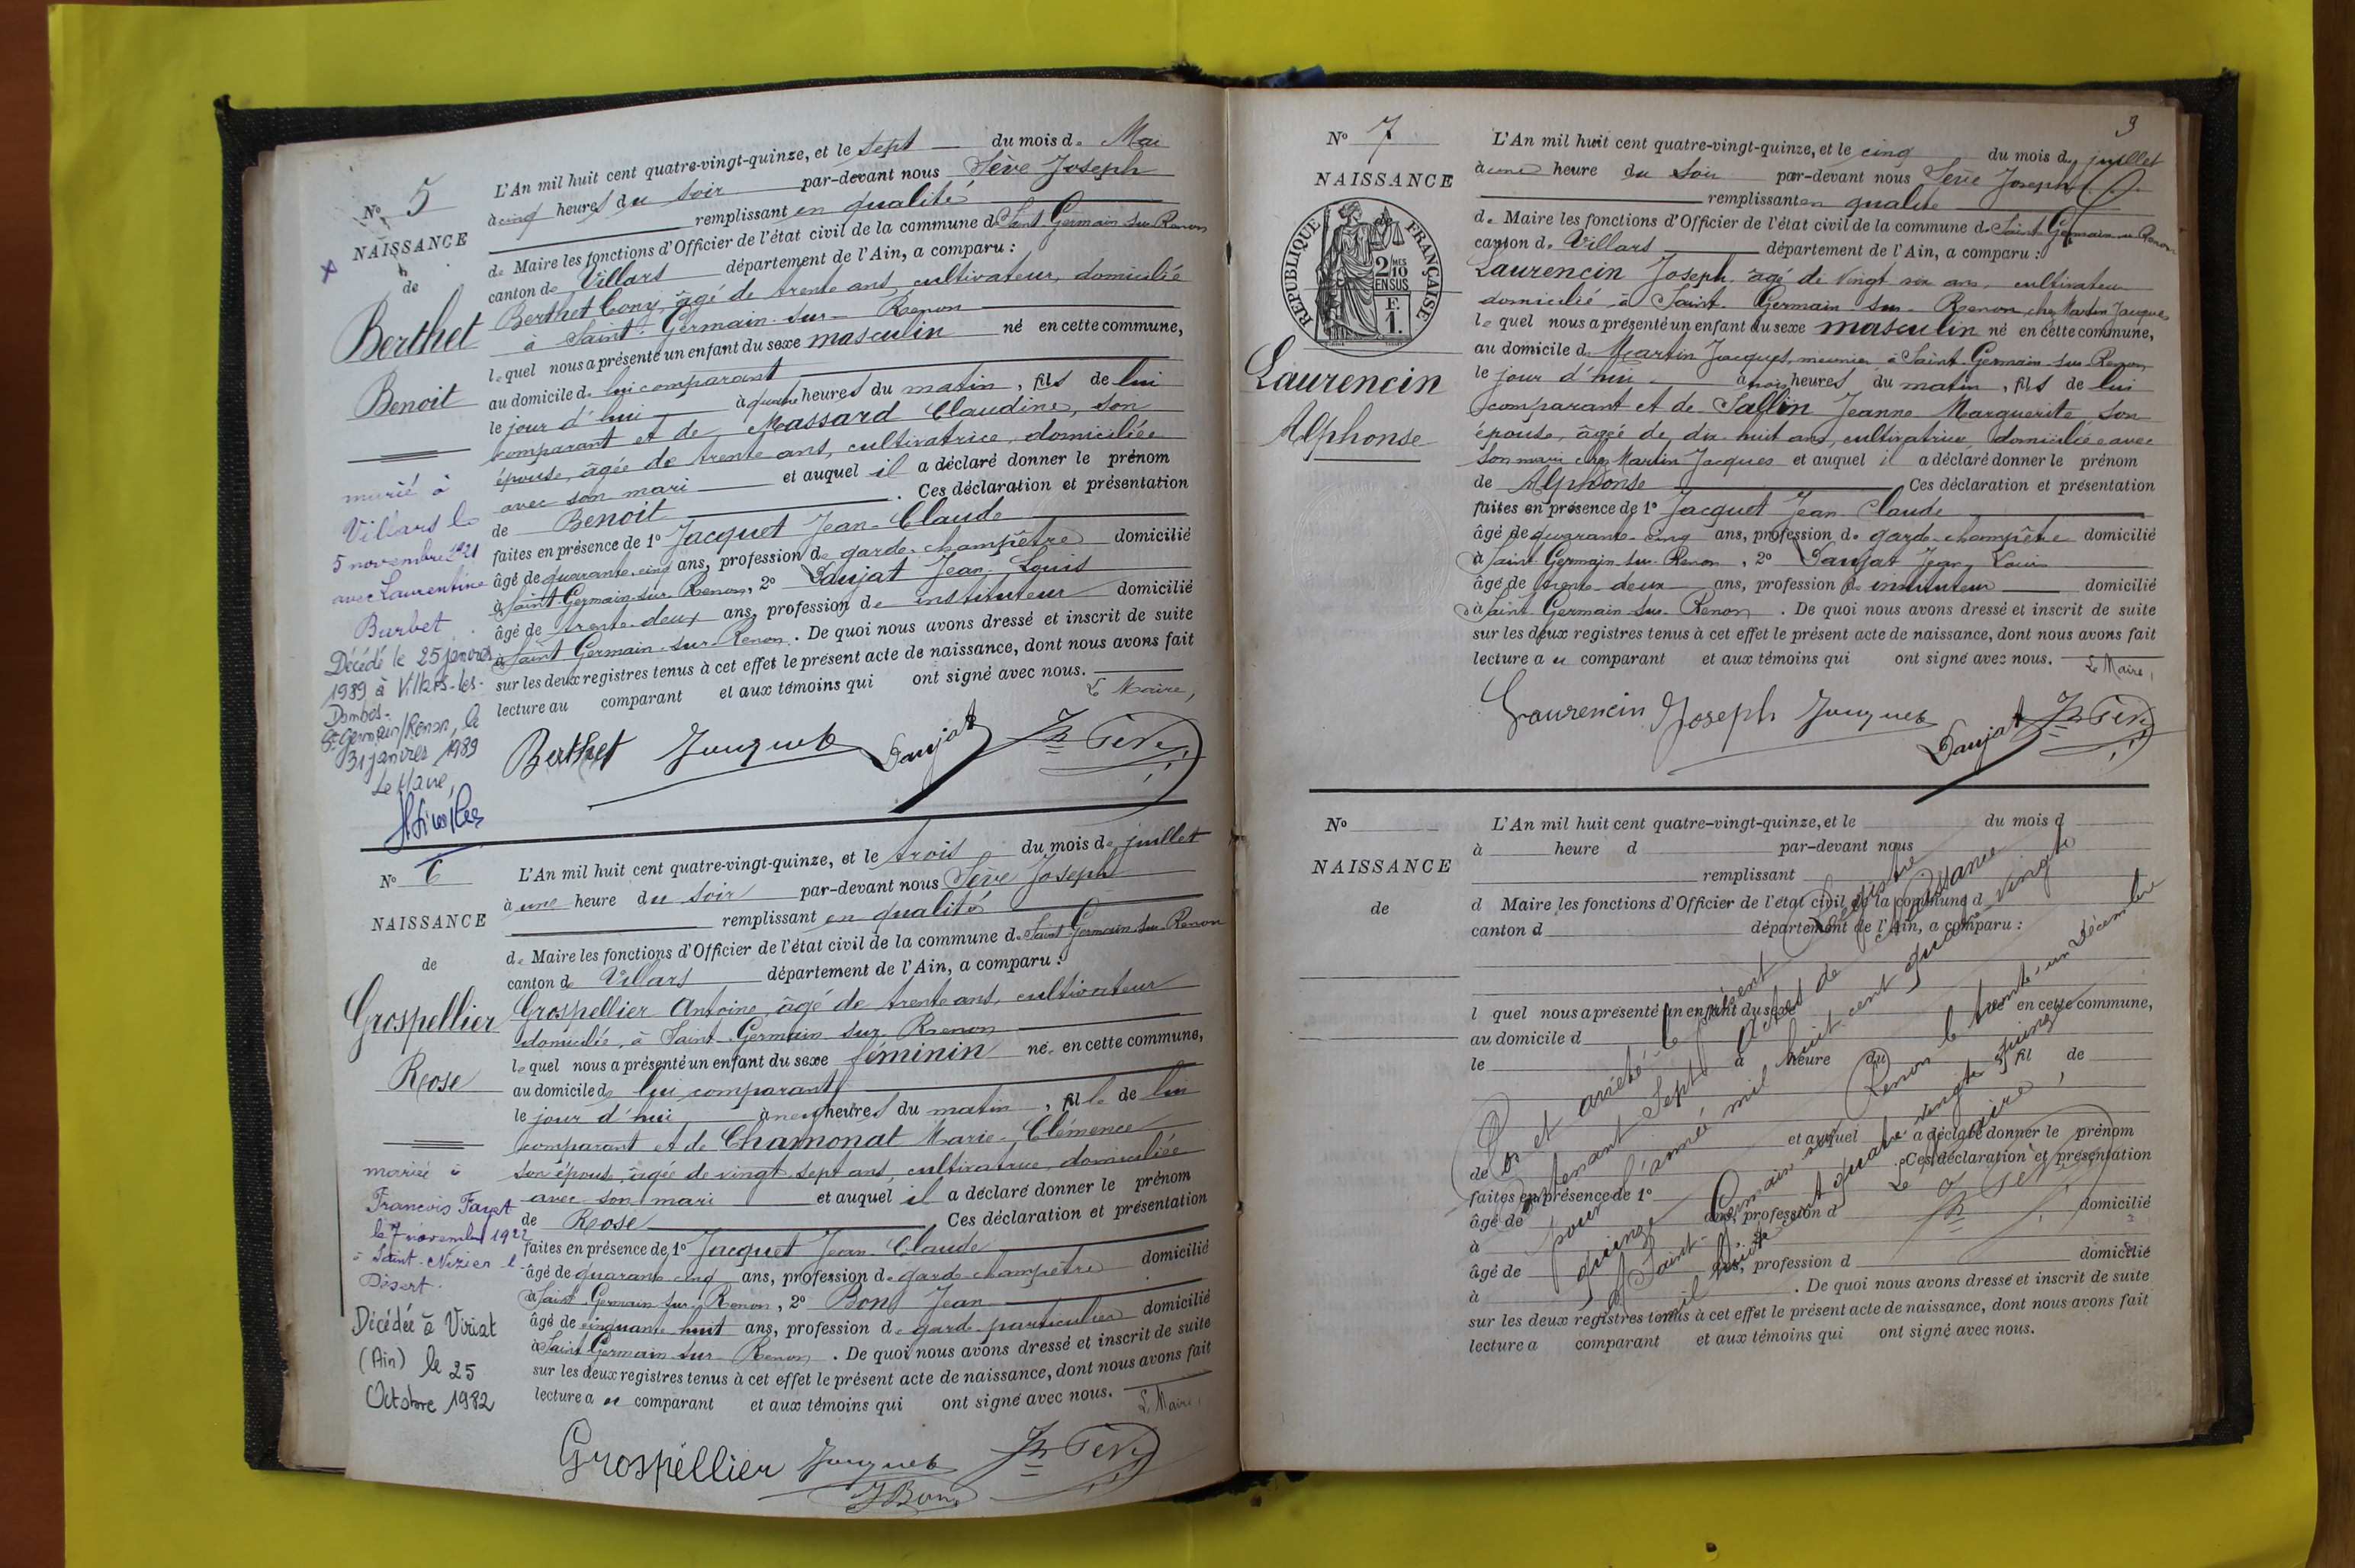 N° 5
NAISSANCE
de
Berthet
Benoit
marié à
Villars le
5 novembre 1921
avec Laurentine
Burbet
Décédé le 25 janvier
1989 à Villars-les-
Dombes.
St Germain/Renon, le
31 janvier 1989
Le Maire,
L'An mil huit cent quatre-vingt-quinze, et le sept du mois de Mai
à cinq heures du soir par-devant nous Sève Joseph
remplissant en qualité
de Maire les fonctions d'Officier de l'état civil de la commune de Saint Germain sur Renon
canton de Villars département de l'Ain, a comparu :
Berthet Cony, âgé de trente ans, cultivateur, domicilié
à Saint-Germain-sur-Renon
lequel nous a présenté un enfant du sexe masculin né en cette commune,
au domicile de lui comparant
le jour d'hui à quatre heures du matin, fils de lui
comparant et de Massard Claudine, son
épouse, âgée de trente ans, cultivatrice, domiciliée
avec son mari et auquel il a déclaré donner le prénom
de Benoit. Ces déclaration et présentation
faites en présence de 1° Jacquet Jean-Claude
âgé de quarante-cinq ans, profession de garde-champêtre domicilié
à Saint Germain-sur-Renon, 2° Daujat Jean-Louis
âgé de trente-deux ans, profession de instituteur domicilié
à Saint Germain-sur-Renon. De quoi nous avons dressé et inscrit de suite
sur les deux registres tenus à cet effet le présent acte de naissance, dont nous avons fait
lecture au comparant et aux témoins qui ont signé avec nous.
Le Maire,
Berthet Jacquet Daujat Jh Sève
N° 6
NAISSANCE
de
Grospellier
Rose
mariée à
François Fayet
le 7 novembre 1922
à Saint-Nizier l-
Désert.
Décédée à Viriat
(Ain) le 25
Octobre 1982
L'An mil huit cent quatre-vingt-quinze, et le trois du mois de juillet
à une heure du soir par-devant nous Sève Joseph
remplissant en qualité
de Maire les fonctions d'Officier de l'état civil de la commune de Saint-Germain-sur-Renon
canton de Villars département de l'Ain, a comparu :
Grospellier Antoine, âgé de trente ans, cultivateur
domicilié, à Saint-Germain-sur-Renon
lequel nous a présenté un enfant du sexe féminin née en cette commune,
au domicile de lui comparant
le jour d'hui à neuf heures du matin, fille de lui
comparant et de Chamonat Marie-Clémence
son épouse, âgée de vingt-sept ans, cultivatrice, domiciliée
avec son mari et auquel il a déclaré donner le prénom
de Rose. Ces déclaration et présentation
faites en présence de 1° Jacquet Jean-Claude
âgé de quarante-cinq ans, profession de garde-champêtre domicilié
à Saint-Germain-sur-Renon, 2° Bon Jean
âgé de cinquante-huit ans, profession de garde-particulier domicilié
à Saint Germain-sur-Renon. De quoi nous avons dressé et inscrit de suite
sur les deux registres tenus à cet effet le présent acte de naissance, dont nous avons fait
lecture au comparant et aux témoins qui ont signé avec nous.
Le Maire,
Grospellier Jacquet Jh Sève
J Bon
3
N° 7
NAISSANCE
RÉPUBLIQUE FRANÇAISE
2 MES 10 EN SUS
F. 1.
Laurencin
Alphonse
L'An mil huit cent quatre-vingt-quinze, et le cinq du mois de juillet
à une heure du soir par-devant nous Sève Joseph
remplissant en qualité
de Maire les fonctions d'Officier de l'état civil de la commune de Saint-Germain-s-Renon
canton de Villars département de l'Ain, a comparu :
Laurencin Joseph, âgé de vingt six ans, cultivateur
domicilié à Saint-Germain-sur-Renon, chez Martin Jacques
lequel nous a présenté un enfant du sexe masculin né en cette commune,
au domicile de Martin Jacques, meunier à Saint-Germain-sur-Renon
le jour d'hui à trois heures du matin, fils de lui
comparant et de Sallin Jeanne-Marguerite son
épouse, âgée de dix-huit ans, cultivatrice, domiciliée avec
son mari chez Martin Jacques et auquel il a déclaré donner le prénom
de Alphonse. Ces déclaration et présentation
faites en présence de 1° Jacquet Jean-Claude
âgé de quarante-cinq ans, profession de garde-champêtre domicilié
à Saint-Germain-sur-Renon, 2° Daujat Jean Louis
âgé de trente-deux ans, profession de instituteur domicilié
à Saint Germain-sur-Renon. De quoi nous avons dressé et inscrit de suite
sur les deux registres tenus à cet effet le présent acte de naissance, dont nous avons fait
lecture au comparant et aux témoins qui ont signé avec nous.
Le Maire,
Laurencin Joseph Jacquet Daujat Jh Sève
N°
NAISSANCE
de
L'An mil huit cent quatre-vingt-quinze, et le du mois d
à heure d par-devant nous
remplissant
d Maire les fonctions d'Officier de l'état civil de la commune d
canton d département de l'Ain, a comparu :
l quel nous a présenté un enfant du sexe né en cette commune,
au domicile d
le à heure du fil de
et auquel a déclaré donner le prénom
de. Ces déclaration et présentation
faites en présence de 1°
âgé de ans, profession d domicilié
à
âgé de ans, profession d domicilié
à. De quoi nous avons dressé et inscrit de suite
sur les deux registres tenus à cet effet le présent acte de naissance, dont nous avons fait
lecture a comparant et aux témoins qui ont signé avec nous.
Clos et arrêté le présent Registre
contenant Sept Actes de Naissance
pour l'année mil huit cent quatre vingt
quinze
A Saint-Germain sur Renon le trente-un Décembre
mil huit cent quatre vingt quinze
Le Maire,
Jh Sève